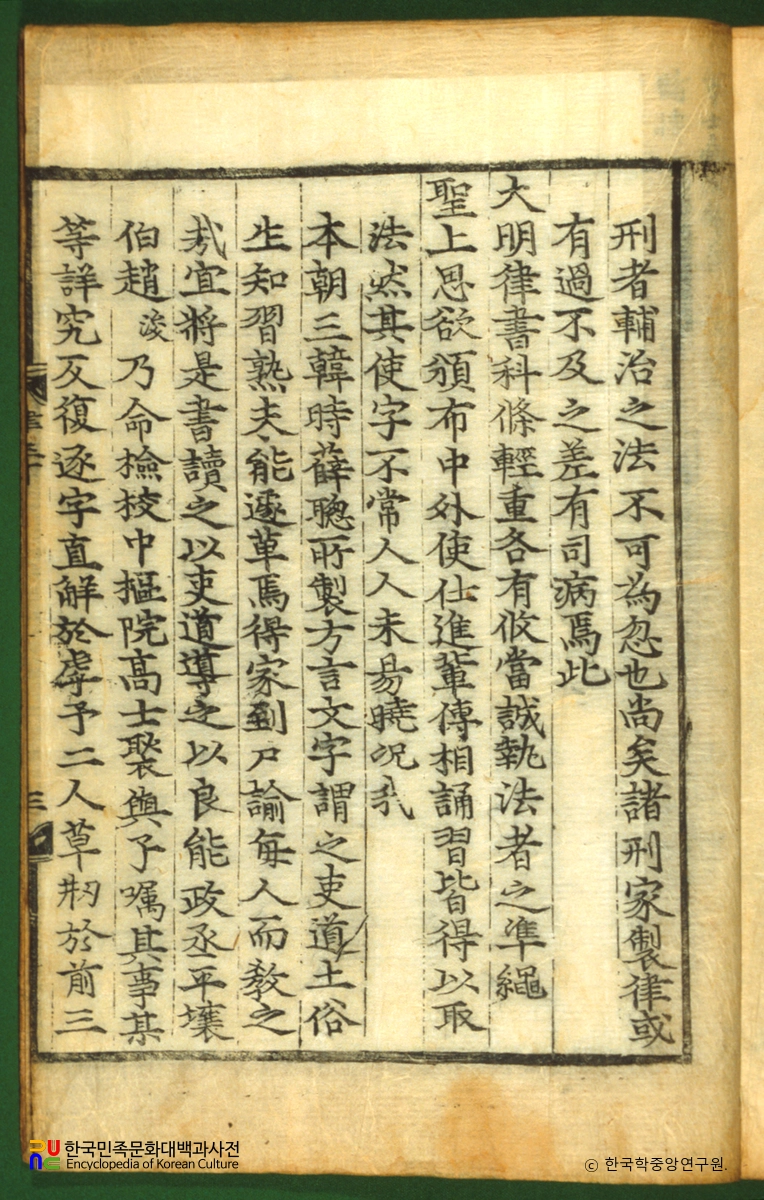 刑者輔治之法不可為忽也尚矣諸刑家製律或
有過不及之差有司病焉此
大明律書科條輕重各有攸當誠執法者之準繩
聖上思欲頒布中外使仕進輩傳相誦習皆得以取
法然其使字不常人人未易曉況我
本朝三韓時薛聰所製方言文字謂之吏道土俗
生知習熟未能遽革焉得家到戶諭每人而教之
哉宜將是書讀之以吏道導之以良能政丞平壤
伯趙浚乃命檢校中樞院高士褧與予囑其事某
等詳究反復逐字直解於虖予二人草刱於前三
한국민족문화대백과사전
Encyclopedia of Korean Culture
© 한국학중앙연구원.